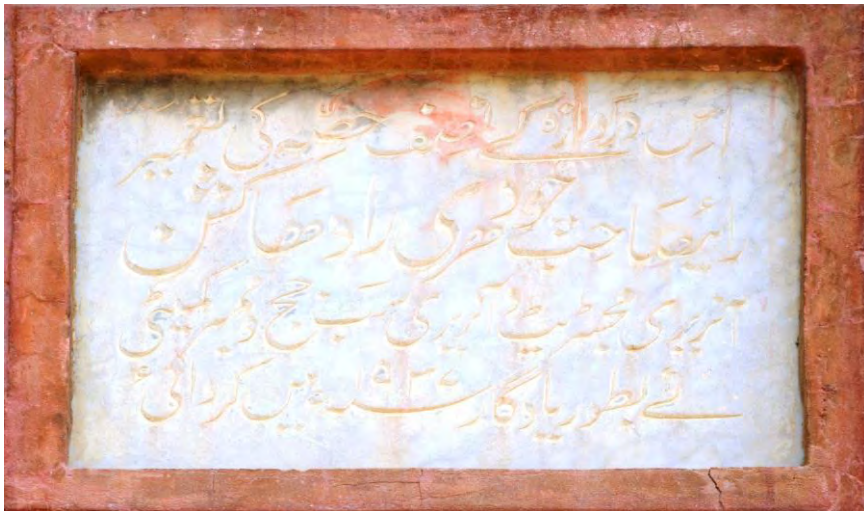 اس دروازہ کے نصف حصہ کی تعمیر
رائیصاحب چودھری رادھاکشن
آنریری مجسٹریٹ و آنریری سب جج و ممبر کمیٹی
نے بطور یادگار میں کروائی